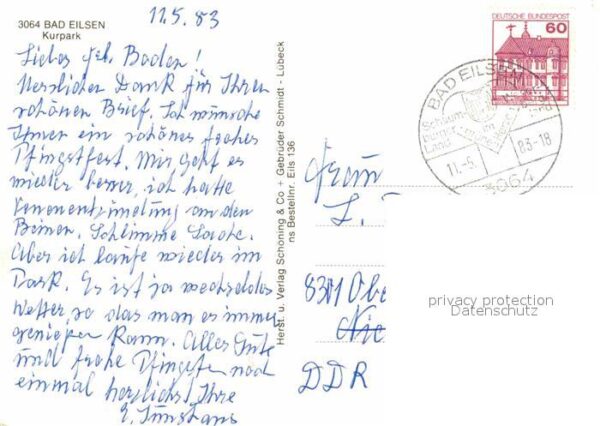 3064 BAD EILSEN
Kurpark
11.5.83
Liebes
Herzlichen Dank für Ihren
schönen Brief. Ich wünsche
Ihnen ein schönes frohes
Pfingstfest. Mir geht es
wieder besser, ich hatte
Venenentzündung an den
Beinen. Schlimme Sache.
Aber ich laufe wieder im
Park. Es ist ja
Wetter, so das man es immer
genießen kann. Alles Gute
und frohe Pfingsten noch
einmal herzlichst Ihre
E.
Herst. u. Verlag Schöning & Co + Gebrüder Schmidt - Lübeck
ns Bestellnr. Eils 136
DEUTSCHE BUNDESPOST
60
BAD EILSEN
Land
11.-5.
83-18
3064
Frau
L.
8301 Obe
DDR
privacy protection
Datenschutz